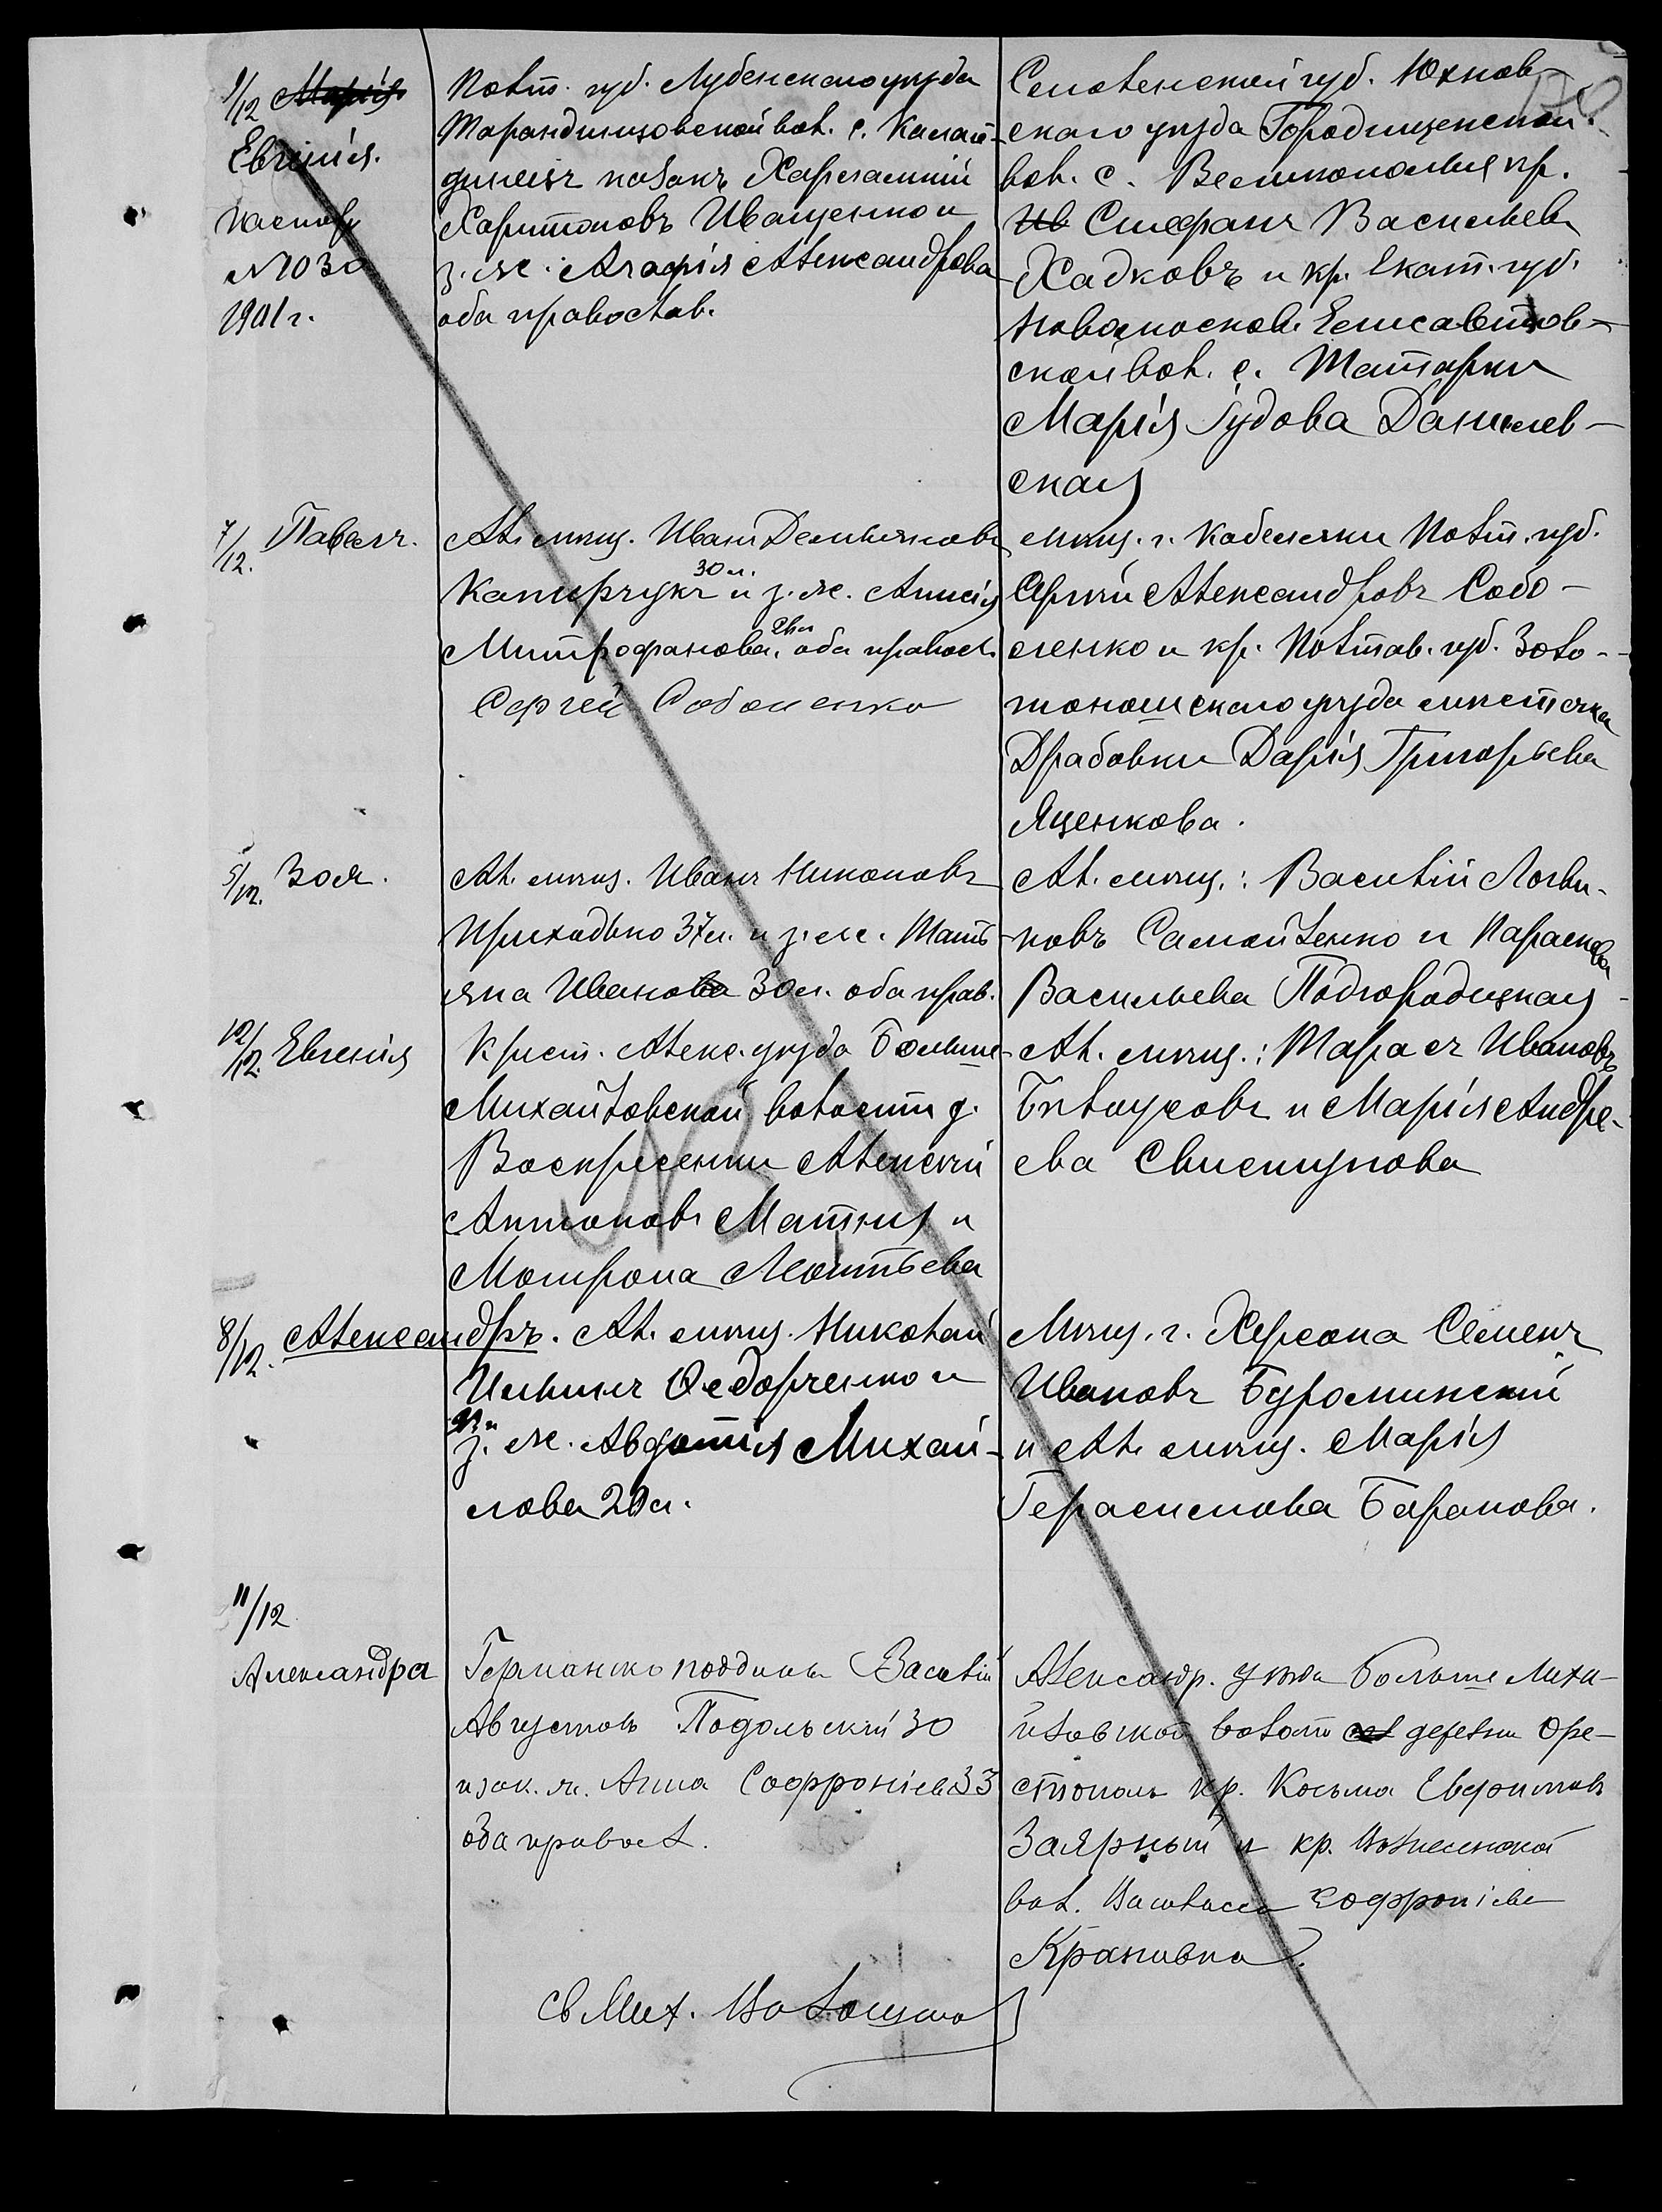 9/12 Марія
Евгенія.
паспор
№1030
1901 г.
Полт. губ. Лубенскаго уѣзда
Тарандинцовской вол. с. Калай-
динецъ козакъ Харлампій
Харитоновъ Иващенко и
з. ж. Агафія Александрова
оба православ.
Смоленской губ. Юхнов-
скаго уѣзда Городищенской
вол. с. Великополья кр.
Ив Стефанъ Васильевъ
Хадковъ и кр. Екат. губ.
Новомосков. Елисаветов-
ской вол. с. Татарки
Марія Іудова Данилев-
ская
7/12. Павелъ.
Ал. мѣщ. Иванъ Демьяновъ
Капирчукъ 30 л. и з. ж. Анисія
Митрофанова, оба правосл.
Сергей Соболенко
мѣщ. г. Кобеляки Полт. губ.
Сергѣй Александровъ Собо-
ленко и кр. Полтав. губ. Золо-
тоношскаго уѣзда мѣстечка
Драбовки Дарія Григорьева
Яценкова.
5/12. Зоя.
Ал. мѣщ. Иванъ Никоновъ
Приходько 37 л. и з. ж. Тать-
яна Иванова 30 л. оба прав.
Ал. мѣщ.: Василій Логви-
новъ Самойленко и Параскева
Васильева Подгородецкая
10/12. Евгенія
Крест. Алекс. уѣзда Больше-
Михайловской волости д.
Воскресенки Алексѣй
Антоновъ Матяш и
Мотрона Леонтьева
Ал. мѣщ.: Тарасъ Ивановъ
Бѣлоусовъ и Марія Андре-
ева Свистунова
8/12. Александръ.
Ал. мѣщ. Николай
Ильинъ Ѳедорченко и
з. ж. Авдотія Михай-
лова 20 л.
Мѣщ. г. Херсона Семенъ
Ивановъ Буроминскій
и Ал. мѣщ. Марія
Герасимова Баранова.
11/12
Александра
Германско поддины Василій
Августовъ Подольскій 30
и зак. ж. Анна Софроніева 33
оба правосл.
Александр. уѣзда Больше Миха-
йловской волости деревни Оре-
стополь кр. Косьма Евфимовъ
Заярный и кр. Вознесенской
вол. Софроніева
Крапивна.
Св Мих. Волошино